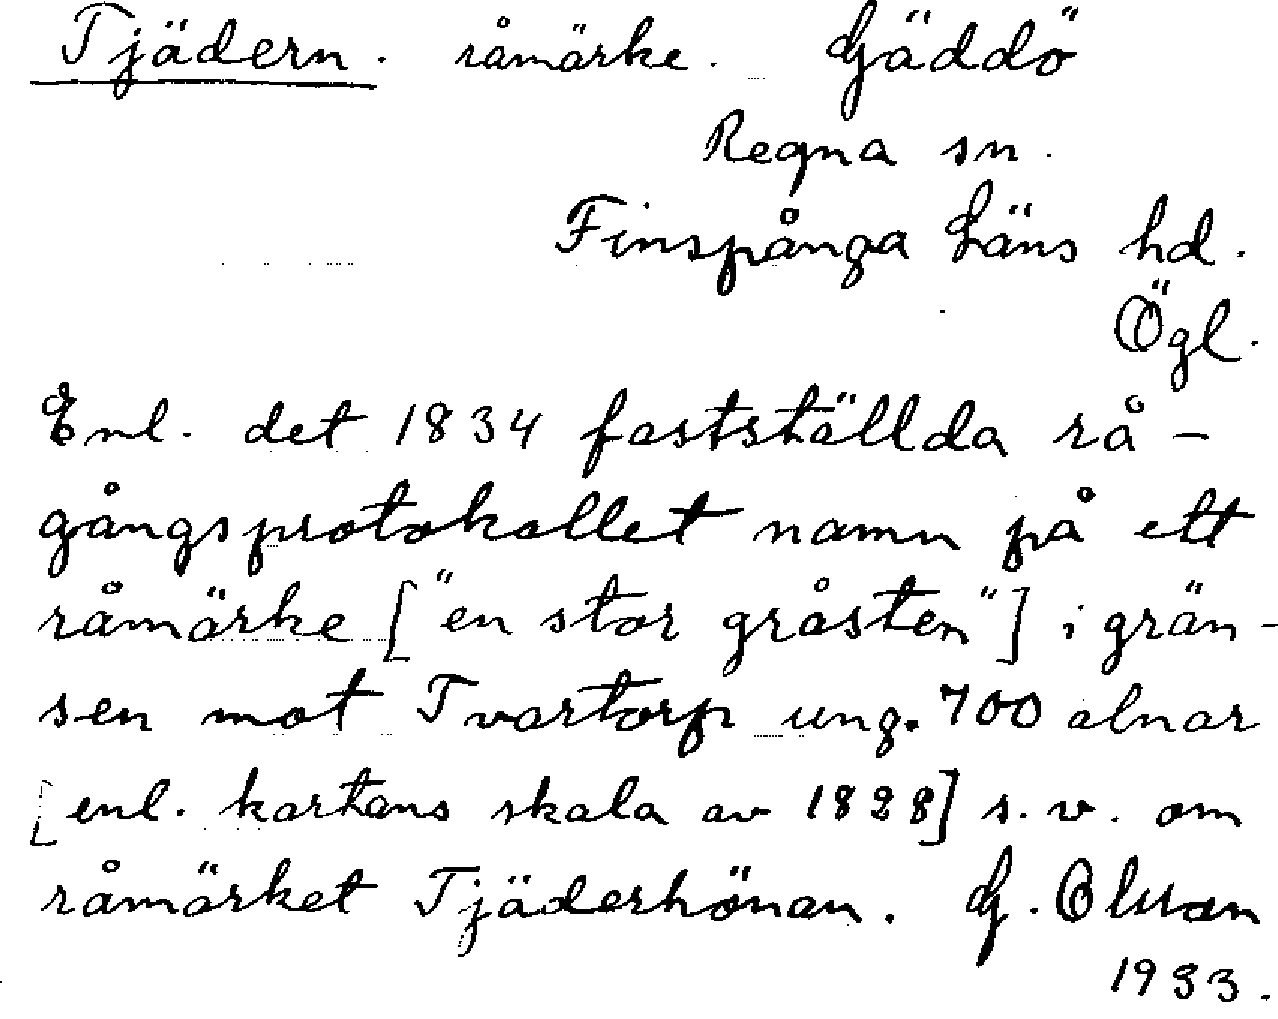 Tjädern. råmärke. Gäddö
Regna sn.
Finspånga läns hd.
Ögl.
Enl. det 1834 fastställda rå-
gångsprotokollet namn på ett
råmärke ["en stor gråsten"] i grän-
sen mot Tvartorp ung. 700 alnar
[enl. kartans skala av 1828] s.v. om
råmärket Tjäderhönan. G. Olsson
1933.